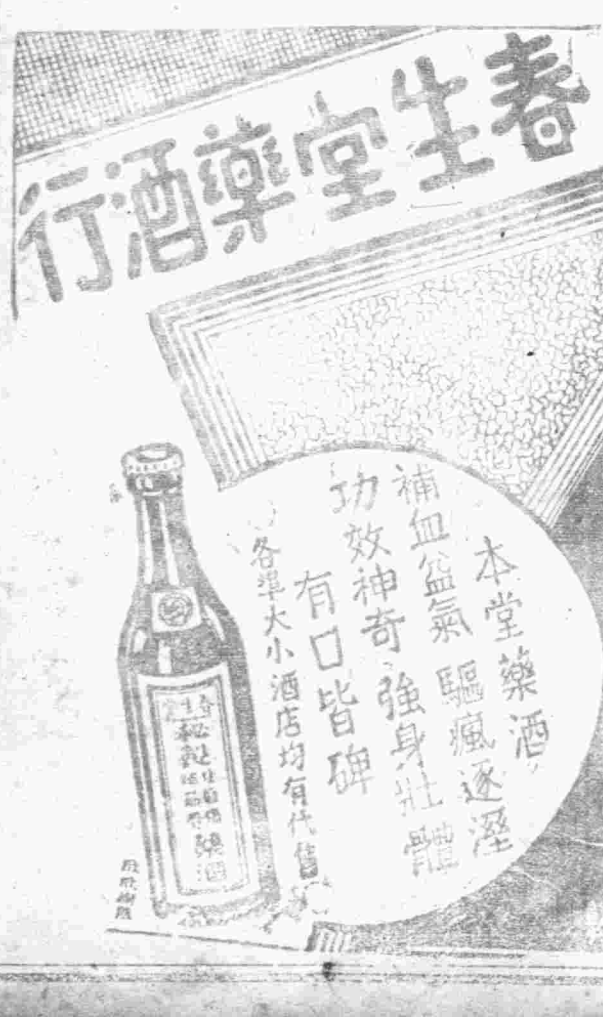 春生堂藥酒行
本堂藥酒，
補血益氣 驅瘋逐溼
功效神奇 強身壯體
有口皆碑
各埠大小酒店均有代售
春生堂
秘製
藥酒